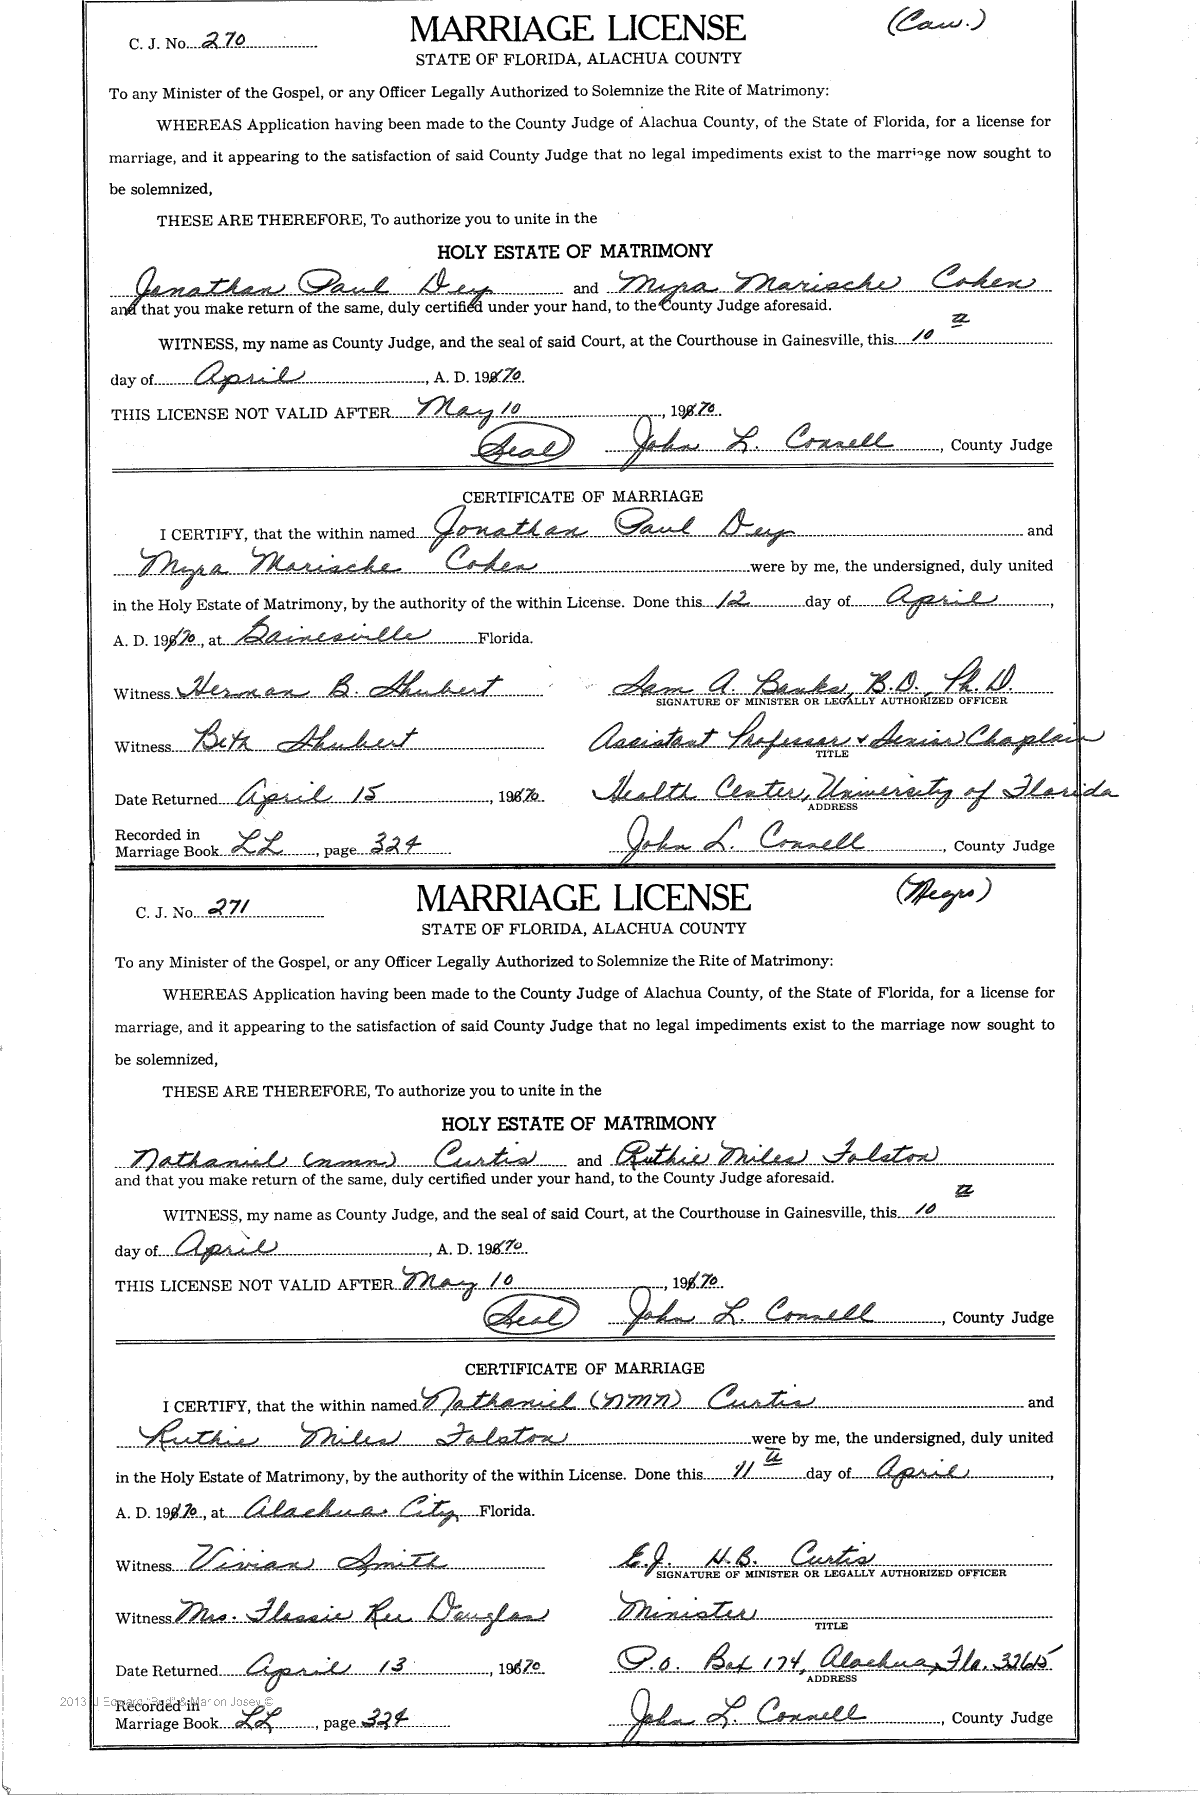 C. J. No. 270
MARRIAGE LICENSE
(Cau.)
STATE OF FLORIDA, ALACHUA COUNTY
To any Minister of the Gospel, or any Officer Legally Authorized to Solemnize the Rite of Matrimony:
WHEREAS Application having been made to the County Judge of Alachua County, of the State of Florida, for a license for
marriage, and it appearing to the satisfaction of said County Judge that no legal impediments exist to the marriage now sought to
be solemnized,
THESE ARE THEREFORE, To authorize you to unite in the
HOLY ESTATE OF MATRIMONY
Jonathan Paul Dey and Myra Marische Cohen
and that you make return of the same, duly certified under your hand, to the County Judge aforesaid.
WITNESS, my name as County Judge, and the seal of said Court, at the Courthouse in Gainesville, this 10th
day of April, A. D. 1970.
THIS LICENSE NOT VALID AFTER May 10, 1970.
(Seal) John L. Connell, County Judge
CERTIFICATE OF MARRIAGE
I CERTIFY, that the within named Jonathan Paul Dey and
Myra Marische Cohen were by me, the undersigned, duly united
in the Holy Estate of Matrimony, by the authority of the within License. Done this 12 day of April,
A. D. 1970, at Gainesville Florida.
Witness Herman B. Shubert Sam A. Banks, B.D., Ph.D.
SIGNATURE OF MINISTER OR LEGALLY AUTHORIZED OFFICER
Witness Beth Shubert Assistant Professor & Senior Chaplain
TITLE
Date Returned April 15, 1970 Health Center, University of Florida
ADDRESS
Recorded in
Marriage Book LL, page 324 John L. Connell, County Judge
C. J. No. 271
MARRIAGE LICENSE
(Negro)
STATE OF FLORIDA, ALACHUA COUNTY
To any Minister of the Gospel, or any Officer Legally Authorized to Solemnize the Rite of Matrimony:
WHEREAS Application having been made to the County Judge of Alachua County, of the State of Florida, for a license for
marriage, and it appearing to the satisfaction of said County Judge that no legal impediments exist to the marriage now sought to
be solemnized,
THESE ARE THEREFORE, To authorize you to unite in the
HOLY ESTATE OF MATRIMONY
Nathaniel (nmn) Curtis and Ruthie Miles Folston
and that you make return of the same, duly certified under your hand, to the County Judge aforesaid.
WITNESS, my name as County Judge, and the seal of said Court, at the Courthouse in Gainesville, this 10th
day of April, A. D. 1970.
THIS LICENSE NOT VALID AFTER May 10, 1970.
(Seal) John L. Connell, County Judge
CERTIFICATE OF MARRIAGE
I CERTIFY, that the within named Nathaniel (NMN) Curtis and
Ruthie Miles Folston were by me, the undersigned, duly united
in the Holy Estate of Matrimony, by the authority of the within License. Done this 11th day of April,
A. D. 1970, at Alachua City Florida.
Witness Vivian Smith E.J. H.B. Curtis
SIGNATURE OF MINISTER OR LEGALLY AUTHORIZED OFFICER
Witness Mrs. Flossie Ree Douglas Minister
TITLE
Date Returned April 13, 1970 P.O. Box 174, Alachua, Fla. 32615
ADDRESS
2013 J Edward "Bud" & Marion Josey ©
Recorded in
Marriage Book LL, page 324 John L. Connell, County Judge